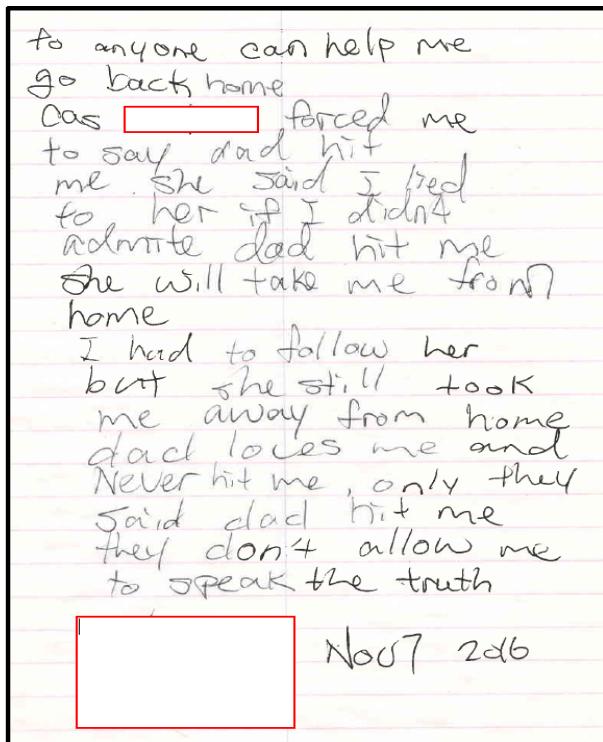 to anyone can help me
go back home
Cas forced me
to say dad hit
me she said I lied
to her if I didnt
admite dad hit me
she will take me from
home
I had to follow her
but she still took
me away from home
dad loves me and
Never hit me, only they
said dad hit me
they don't allow me
to speak the truth
Nov 7 2016